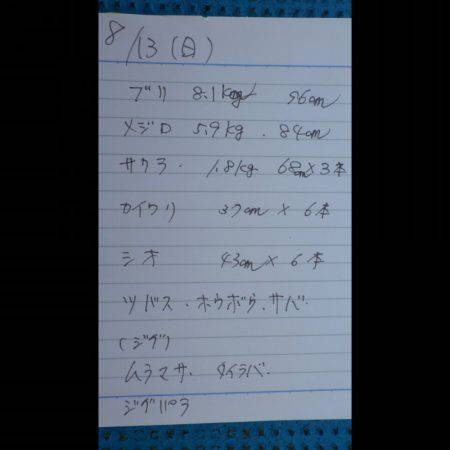 8/13(日)
ブリ 8.1kg 96cm
メジロ 5.9kg. 84cm
サワラ. 1.8kg 68cm×3本
カイワリ 37cm × 6本
シオ 43cm× 6本
ツバス・ホウボウ.サバ.
(ジグ)
ムラマサ. タイラバ.
ジグパラ